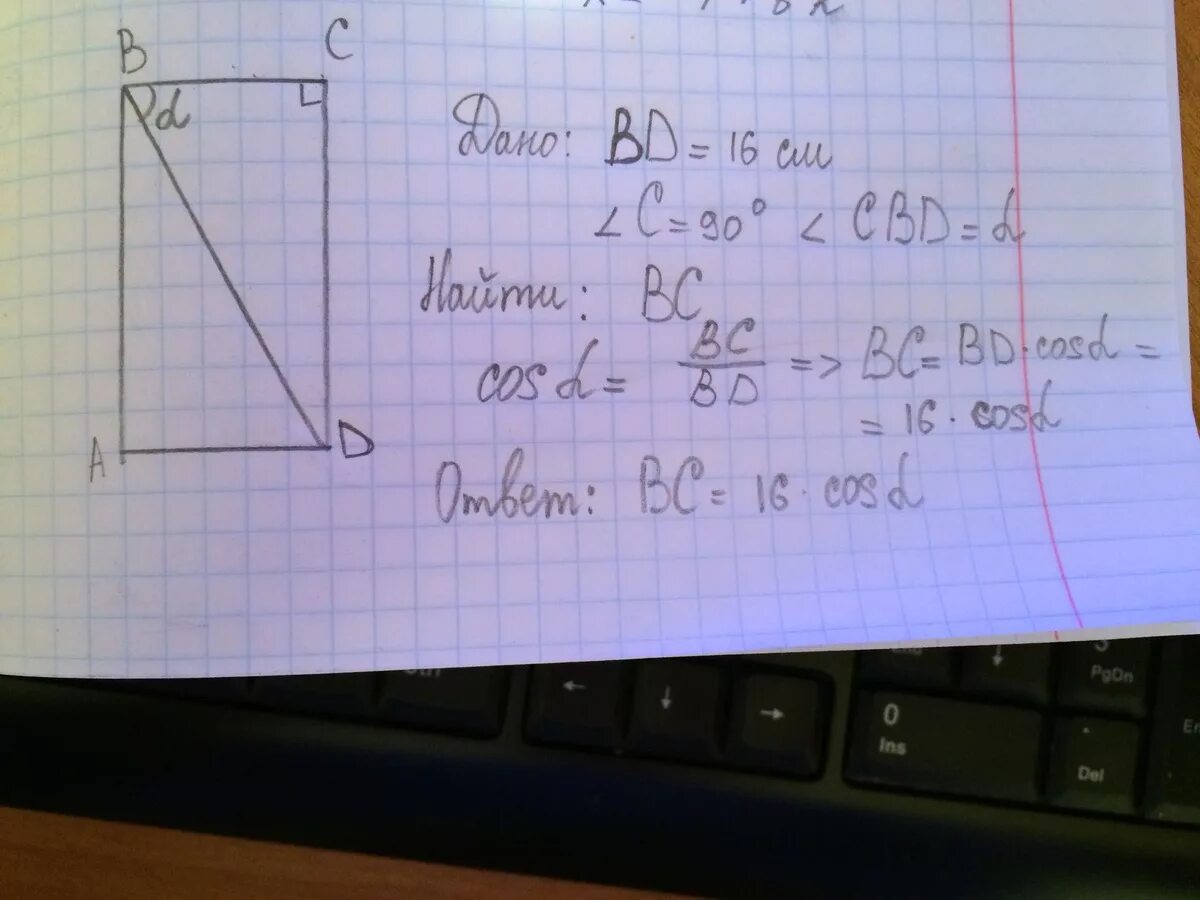 B C
α
Дано: BD = 16 см
∠C = 90° ∠CBD = α
Найти: BC
cos α = BC/BD => BC = BD · cos α =
= 16 · cos α
A D
Ответ: BC = 16 · cos α
← ↓ → 0 Ins ↓ PgDn Del